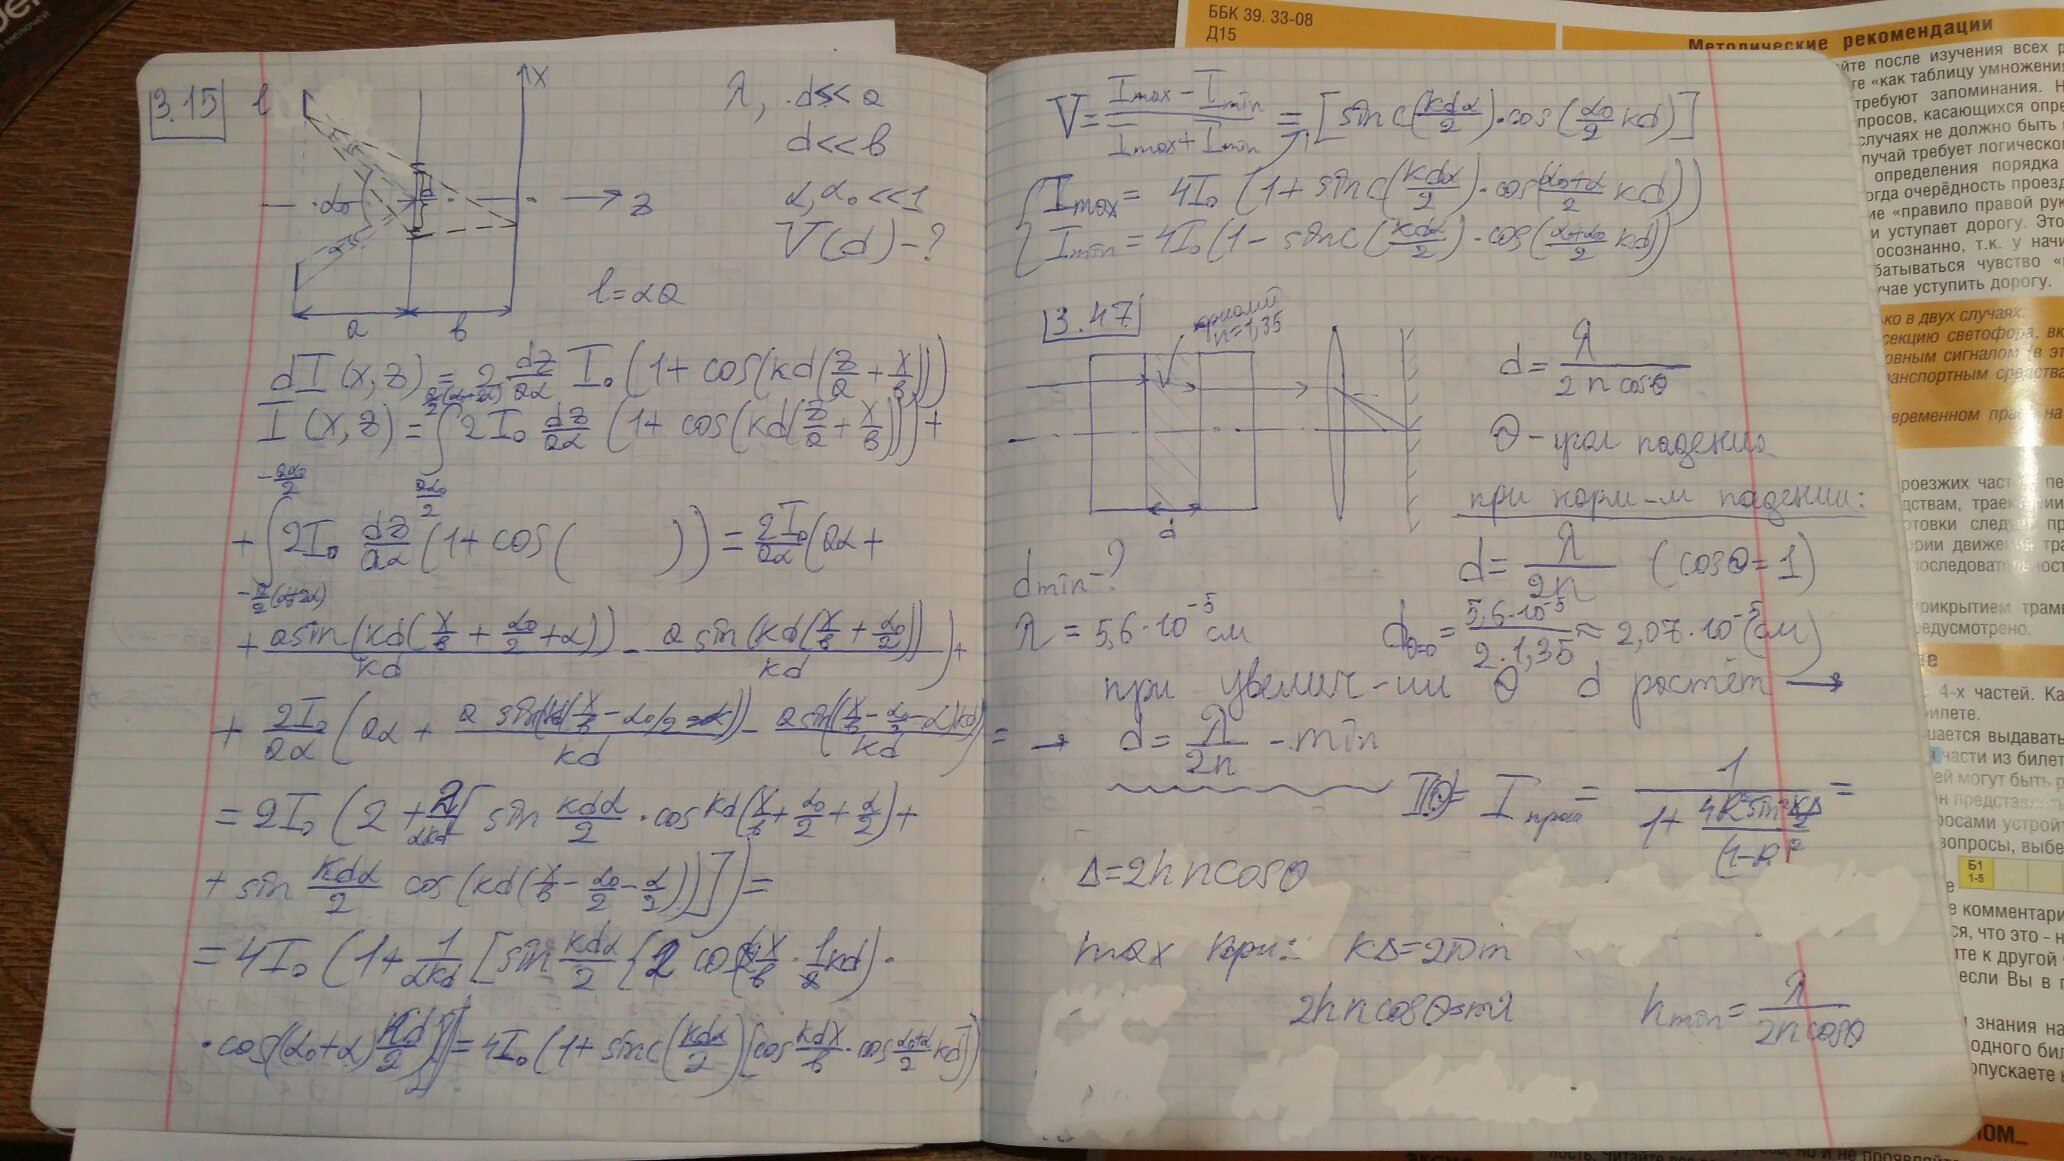 3.15 l x λ, d<<a
d<<b
α₀ d z α, α₀ <<1
V(d) - ?
l = αa
a b
dI(x,z) = 2 dz/aα I₀ (1 + cos(kd(z/a + x/b)))
I(x,z) = ∫_{aα₀/2}^{a/2(α₀+2α)} 2I₀ dz/aα (1 + cos(kd(z/a + x/b))) +
+ ∫_{-a/2(α₀+2α)}^{-aα₀/2} 2I₀ dz/aα (1 + cos( )) = 2I₀/aα (aα +
+ a sin(kd(x/b + α₀/2 + α))/kd - a sin(kd(x/b + α₀/2))/kd) +
+ 2I₀/aα (aα + a sin(kd(x/b - α₀/2))/kd - a sin((x/b - α₀/2 - α)kd)/kd) =
= 2I₀ (2 + 2/αkd [sin kdα/2 · cos kd(x/b + α₀/2 + α/2) +
+ sin kdα/2 cos(kd(x/b - α₀/2 - α/2))]) =
= 4I₀ (1 + 1/αkd [sin kdα/2 {2 cos(2x/b · 1/2 kd) ·
· cos((α₀+α) kd/2)}]) = 4I₀ (1 + sinc(kdα/2) [cos kdx/b · cos α₀+α/2 kd])
V = Imax - Imin / Imax + Imin = [sinc(kdα/2) · cos(α₀/2 kd)]
Imax = 4I₀ (1 + sinc(kdα/2) · cos(α₀+α/2 kd))
Imin = 4I₀ (1 - sinc(kdα/2) · cos(α+α₀/2 kd))
3.47 криолит
n=1,35
d = λ / 2n cosθ
θ - угол падения
при норм-м падении:
d
dmin - ? d = λ/2n (cosθ = 1)
λ = 5,6·10⁻⁵ см d_{θ=0} = 5,6·10⁻⁵ / 2·1,35 ≈ 2,07·10⁻⁵ (см)
при увелич-ии θ d растёт →
→ d = λ/2n - min
I прош = 1 / 1 + 4R² sin² kΔ/2 / (1-R)² =
Δ = 2hn cosθ
max при: kΔ = 2πm
2hn cosθ = mλ hmin = λ / 2n cosθ
ББК 39. 33-08
Д15
Методические рекомендации
йте после изучения всех
те «как таблицу умножени
требуют запоминания.
просов, касающихся опре
случаях не должно быть
лучай требует логическо
определения порядка
огда очерёдность проезд
ие «правило правой рук
и уступает дорогу. Это
осознанно, т.к. у начи
батываться чувство «
учае уступить дорогу.
ко в двух случаях.
секцию светофора, вк
овным сигналом (в эт
ранспортным средства
временном праве на
роезжих част
дствам, траек
овки следу
рии движения тра
последовательност
рикрытием трам
едусмотрено.
4-х частей. Ка
билете.
шается выдавать
части из билет
ей могут быть р
он представле
росами устройт
вопросы, выбе
Б1
1-5
е комментари
ся, что это - н
йте к другой
если Вы в
знания на
одного бил
опускаете
ЛОМ...